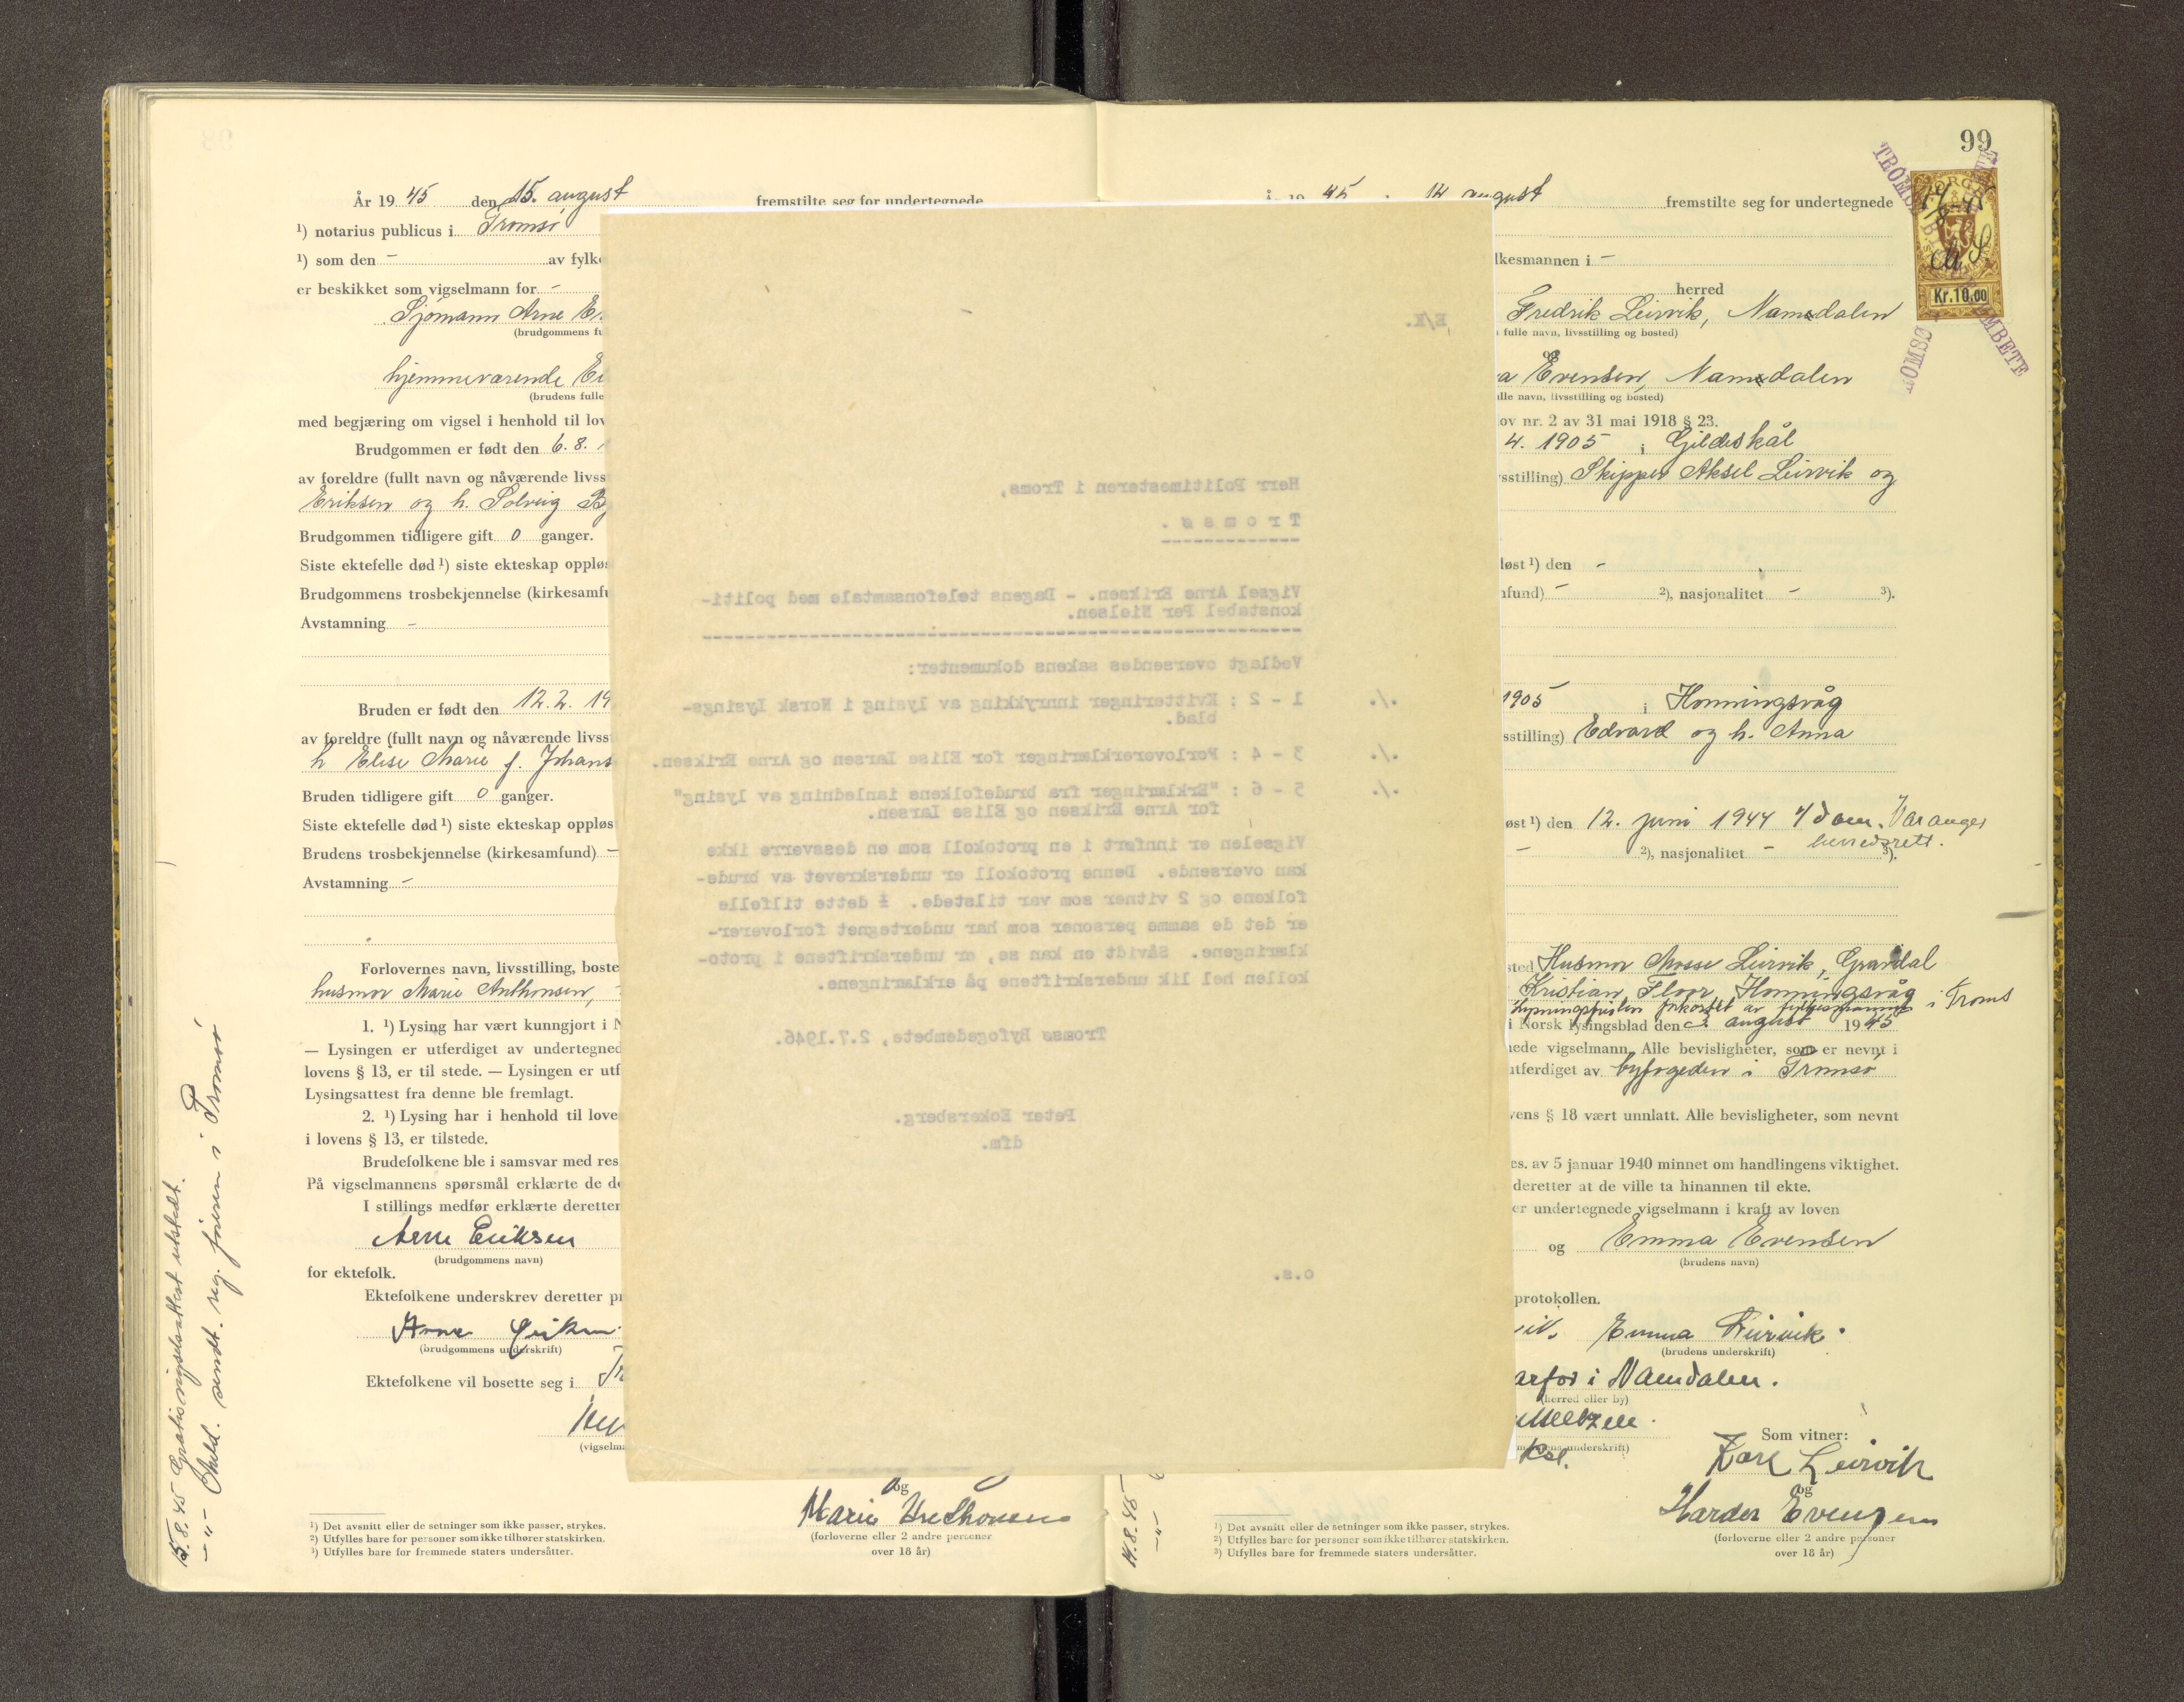 År 1945 den 15. august fremstilte seg for undertegnede
¹) notarius publicus i Tromsø
¹) som den - av fylke
er beskikket som vigselmann for -
Sjømann Arne
(brudgommens fu
hjemmeværende
(brudens fulle
med begjæring om vigsel i henhold til lov
Brudgommen er født den 6.8.
av foreldre (fullt navn og nåværende livss
Eriksen og h. Solveig
Brudgommen tidligere gift 0 ganger.
Siste ektefelle død ¹) siste ekteskap oppløs
Brudgommens trosbekjennelse (kirkesamfu
Avstamning -
Bruden er født den 12.2. 19
av foreldre (fullt navn og nåværende livss
h Elise Marie f. Johans
Bruden tidligere gift 0 ganger.
Siste ektefelle død ¹) siste ekteskap oppløs
Brudens trosbekjennelse (kirkesamfund) -
Avstamning -
Forlovernes navn, livsstilling, boste
husmor Marie Anthonsen,
1. ¹) Lysing har vært kunngjort i N
— Lysingen er utferdiget av undertegned
lovens § 13, er til stede. — Lysingen er utf
Lysingsattest fra denne ble fremlagt.
2. ¹) Lysing har i henhold til love
i lovens § 13, er tilstede.
Brudefolkene ble i samsvar med res
På vigselmannens spørsmål erklærte de de
I stillings medfør erklærte deretter
Arne Eriksen
(brudgommens navn)
for ektefolk.
Ektefolkene underskrev deretter pr
Arne Eriksen
(brudgommens underskrift)
Ektefolkene vil bosette seg i
(vigselma
og
Marie Anthonsen
(forloverne eller 2 andre personer
over 18 år)
¹) Det avsnitt eller de setninger som ikke passer, strykes.
²) Utfylles bare for personer som ikke tilhører statskirken.
³) Utfylles bare for fremmede staters undersåtter.
15.8.45 Gratis vigselsattest utstedt.
-"- Meld. sendt. reg. føreren i Tromsø
E/K.
Herr Politimesteren i Troms,
Tromsø.
Vigsel Arne Eriksen. - Dagens telefonsamtale med politi-
konstabel Per Nielsen.
Vedlagt oversendes sakens dokumenter:
./. 1 - 2 : Kvitteringer innrykking av lysing i Norsk Lysings-
blad.
./. 3 - 4 : Forlovererklæringer for Elise Larsen og Arne Eriksen.
./. 5 - 6 : "Erklæringer fra brudefolkene ianledning av lysing"
for Arne Eriksen og Elise Larsen.
Vigselen er innført i en protokoll som en dessverre ikke
kan oversende. Denne protokoll er underskrevet av brude-
folkene og 2 vitner som var tilstede. I dette tilfelle
er det de samme personer som har undertegnet forloverer-
klæringene. Såvidt en kan se, er underskriftene i proto-
kollen hel lik underskriftene på erklæringene.
Tromsø Byfogedembete, 2.7.1946.
Peter Eckersberg.
dfm.
o.s.
99
År 1945 14 august fremstilte seg for undertegnede
lkesmannen i -
herred
Fredrik Leirvik, Namdalen
fulle navn, livsstilling og bosted)
og
a Evensen, Namdalen
lle navn, livsstilling og bosted)
ov nr. 2 av 31 mai 1918 § 23.
4. 1905 i Gildeskål
sstilling) Skipper Aksel Leirvik og
løst ¹) den -
nfund) - ²), nasjonalitet - ³).
1905 i Honningsvåg
sstilling) Edvard og h. Anna
øst ¹) den 12. juni 1944 v/dom. Varanger
herredsrett.
- ²), nasjonalitet - ³).
sted Husmor Mosse Leirvik, Gravdal
Kristian Floor, Honningsvåg
Lysningsfristen forkortet av fylkesmannen i Troms
i Norsk lysingsblad den 3. august 1945
ede vigselmann. Alle bevisligheter, som er nevnt i
utferdiget av byfogeden i Tromsø
vens § 18 vært unnlatt. Alle bevisligheter, som nevnt
es. av 5 januar 1940 minnet om handlingens viktighet.
deretter at de ville ta hinannen til ekte.
er undertegnede vigselmann i kraft av loven
og Emma Evensen
(brudens navn)
protokollen.
Emma Leirvik
(brudens underskrift)
arfos i Namdalen.
(herred eller by)
underskrift)
Som vitner:
Kåre Leirvik
og
Harder Evensen
(forloverne eller 2 andre personer
over 18 år)
¹) Det avsnitt eller de setninger som ikke passer, strykes.
²) Utfylles bare for personer som ikke tilhører statskirken.
³) Utfylles bare for fremmede staters undersåtter.
14.8.45
-"-
Kr.10.00